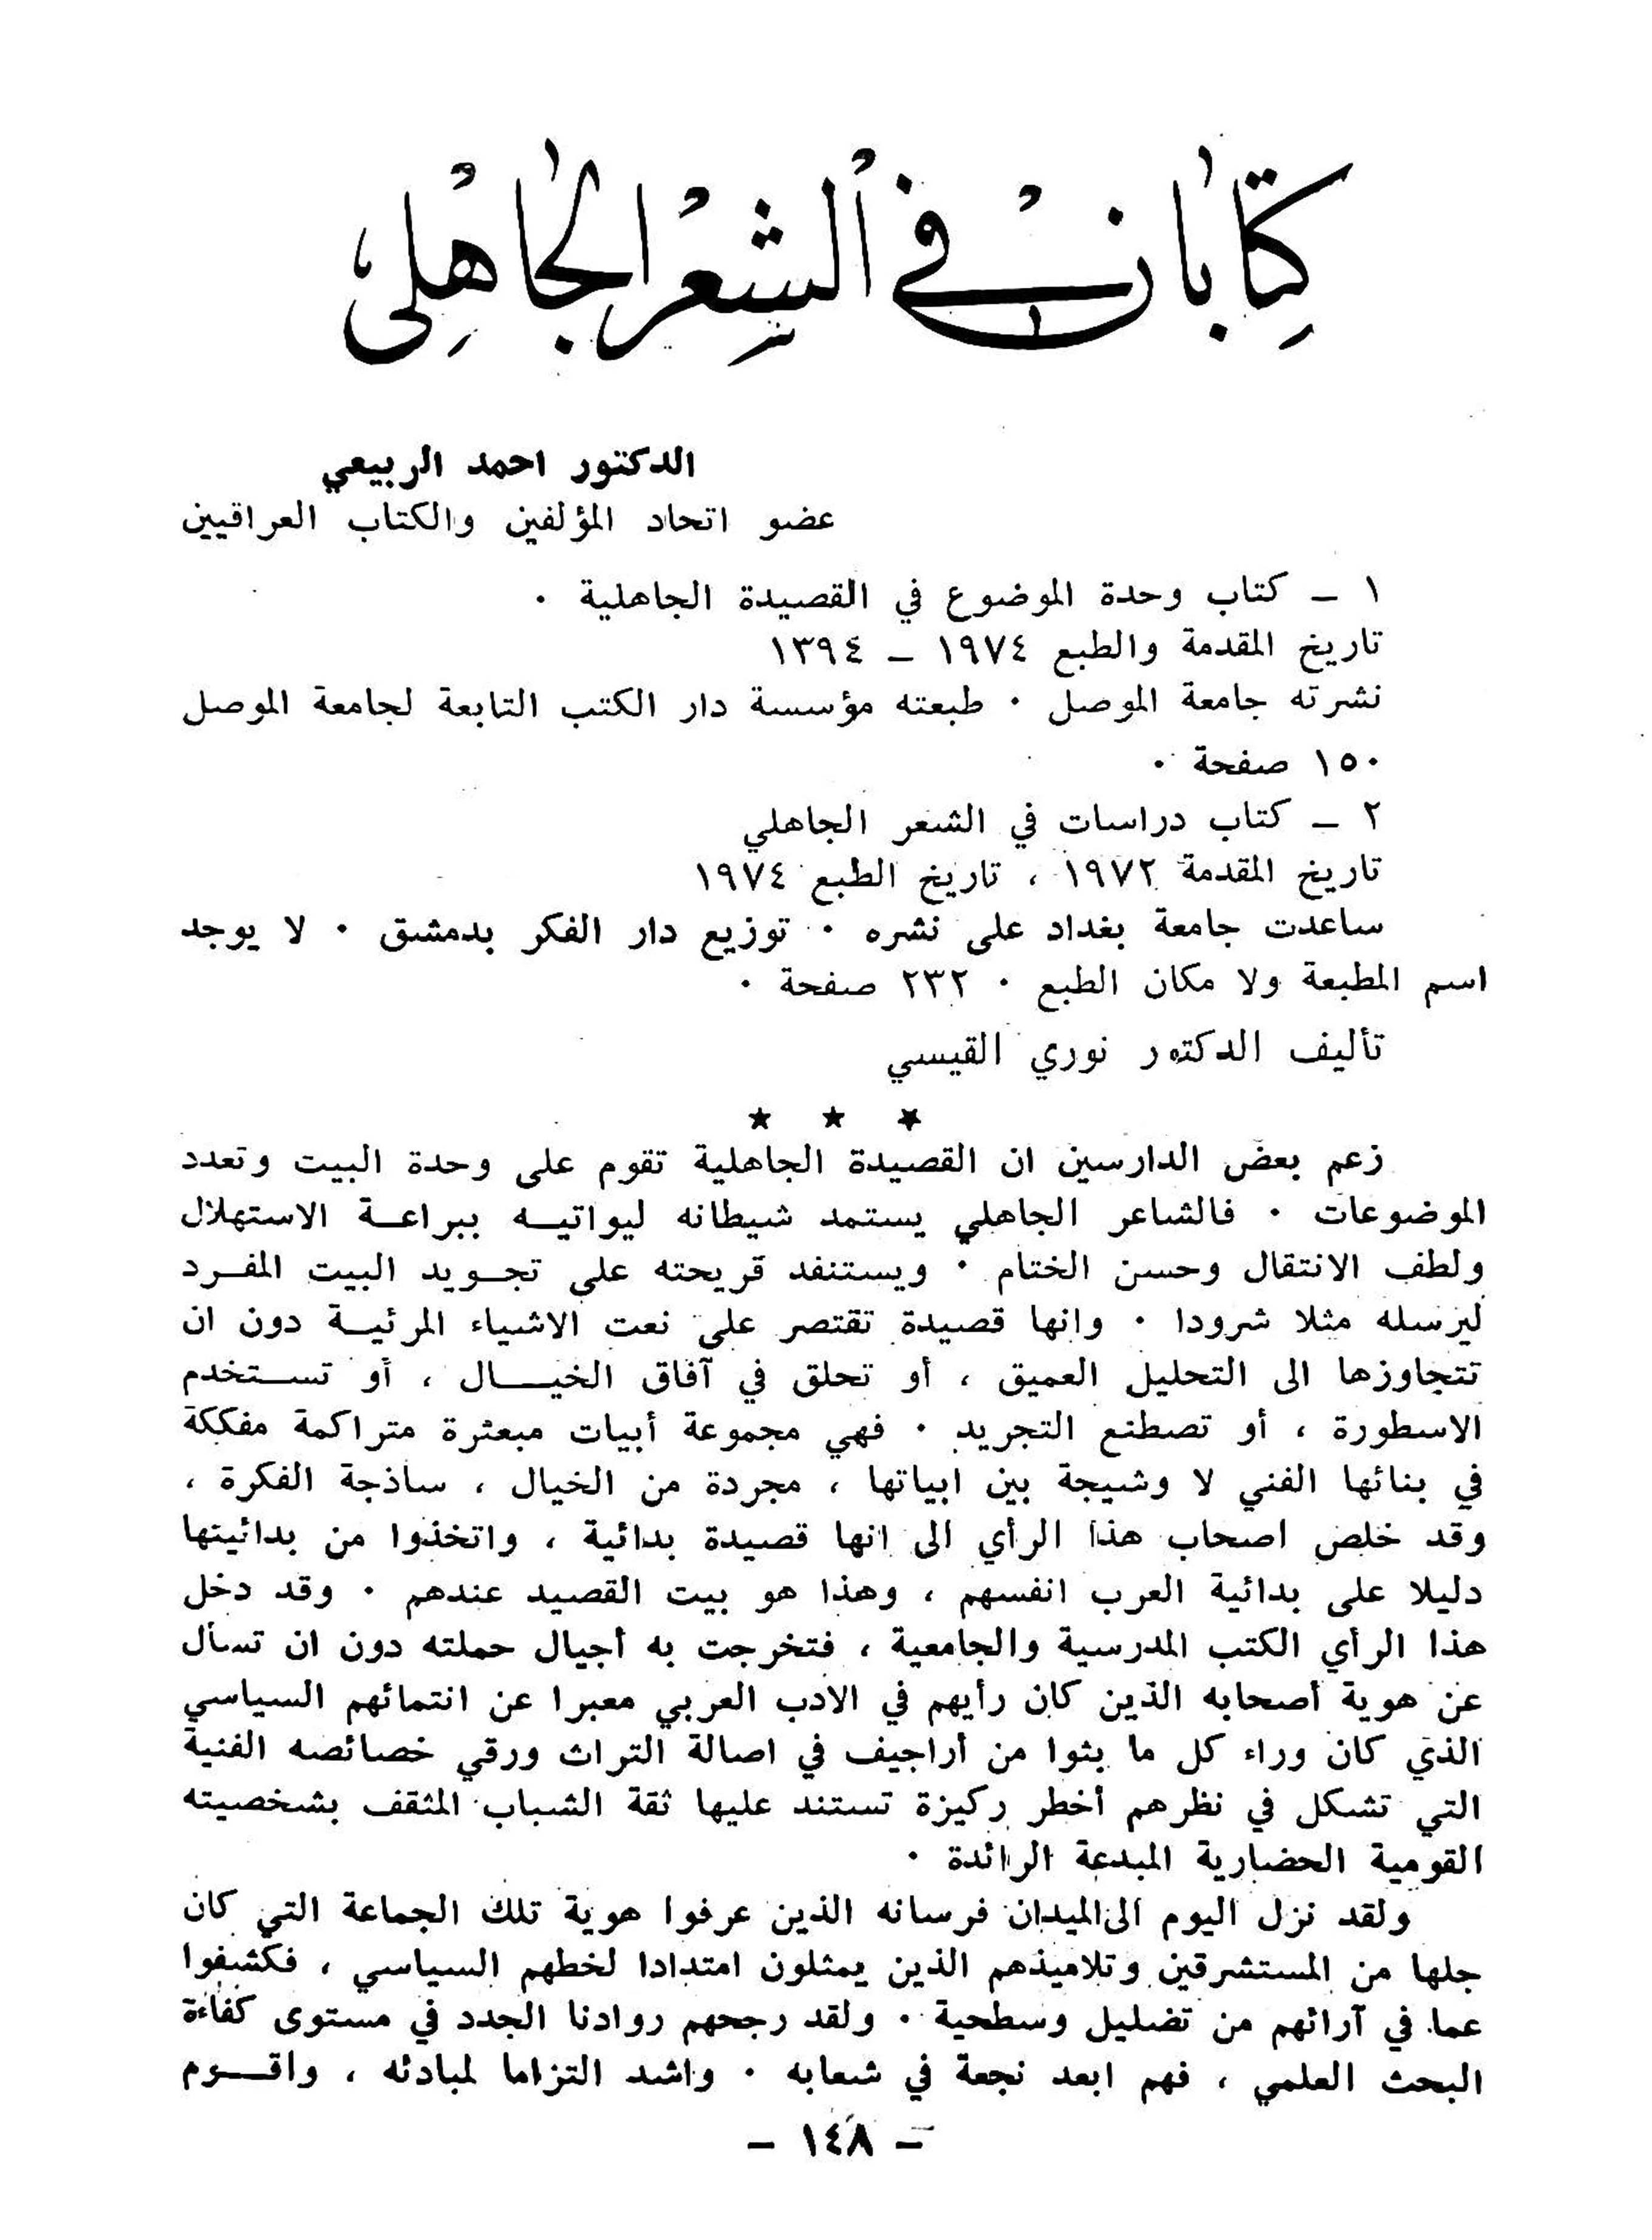 كتابان في الشعر الجاهلي
الدكتور احمد الربيعي
عضو اتحاد المؤلفين والكتاب العراقيين
١ ــ كتاب وحدة الموضوع في القصيدة الجاهلية ٠
تاريخ المقدمة والطبع ١٩٧٤ ــ ١٣٩٤
نشرته جامعة الموصل ٠ طبعته مؤسسة دار الكتب التابعة لجامعة الموصل
١٥٠ صفحة ٠
٢ ــ كتاب دراسات في الشعر الجاهلي
تاريخ المقدمة ١٩٧٢ ، تاريخ الطبع ١٩٧٤
ساعدت جامعة بغداد على نشره ٠ توزيع دار الفكر بدمشق ٠ لا يوجد
اسم المطبعة ولا مكان الطبع ٠ ٢٣٢ صفحة ٠
تأليف الدكتور نوري القيسي
★ ★ ★
زعم بعض الدارسين ان القصيدة الجاهلية تقوم على وحدة البيت وتعدد
الموضوعات ٠ فالشاعر الجاهلي يستمد شيطانه ليواتيــه ببراعــة الاستهلال
ولطف الانتقال وحسن الختام ٠ ويستنفد قريحته على تجــويد البيت المفــرد
ليرسله مثلا شرودا ٠ وانها قصيدة تقتصر على نعت الاشياء المرئيــة دون ان
تتجاوزها الى التحليل العميق ، أو تحلق في آفاق الخيــــال ، أو تســـتخدم
الاسطورة ، أو تصطنع التجريد ٠ فهي مجموعة أبيات مبعثرة متراكمة مفككة
في بنائها الفني لا وشيجة بين ابياتها ، مجردة من الخيال ، ساذجة الفكرة ،
وقد خلص اصحاب هذا الرأي الى انها قصيدة بدائية ، واتخذوا من بدائيتها
دليلا على بدائية العرب انفسهم ، وهذا هو بيت القصيد عندهم ٠ وقد دخل
هذا الرأي الكتب المدرسية والجامعية ، فتخرجت به أجيال حملته دون ان تسأل
عن هوية أصحابه الذين كان رأيهم في الادب العربي معبرا عن انتمائهم السياسي
الذي كان وراء كل ما بثوا من أراجيف في اصالة التراث ورقي خصائصه الفنية
التي تشكل في نظرهم أخطر ركيزة تستند عليها ثقة الشباب المثقف بشخصيته
القومية الحضارية المبدعة الرائدة ٠
ولقد نزل اليوم الى الميدان فرسانه الذين عرفوا هوية تلك الجماعة التي كان
جلها من المستشرقين وتلاميذهم الذين يمثلون امتدادا لخطهم السياسي ، فكشفوا
عما في آرائهم من تضليل وسطحية ٠ ولقد رجحهم روادنا الجدد في مستوى كفاءة
البحث العلمي ، فهم ابعد نجعة في شعابه ٠ واشد التزاما لمبادئه ، واقــــوم
ــ ١٤٨ ــ